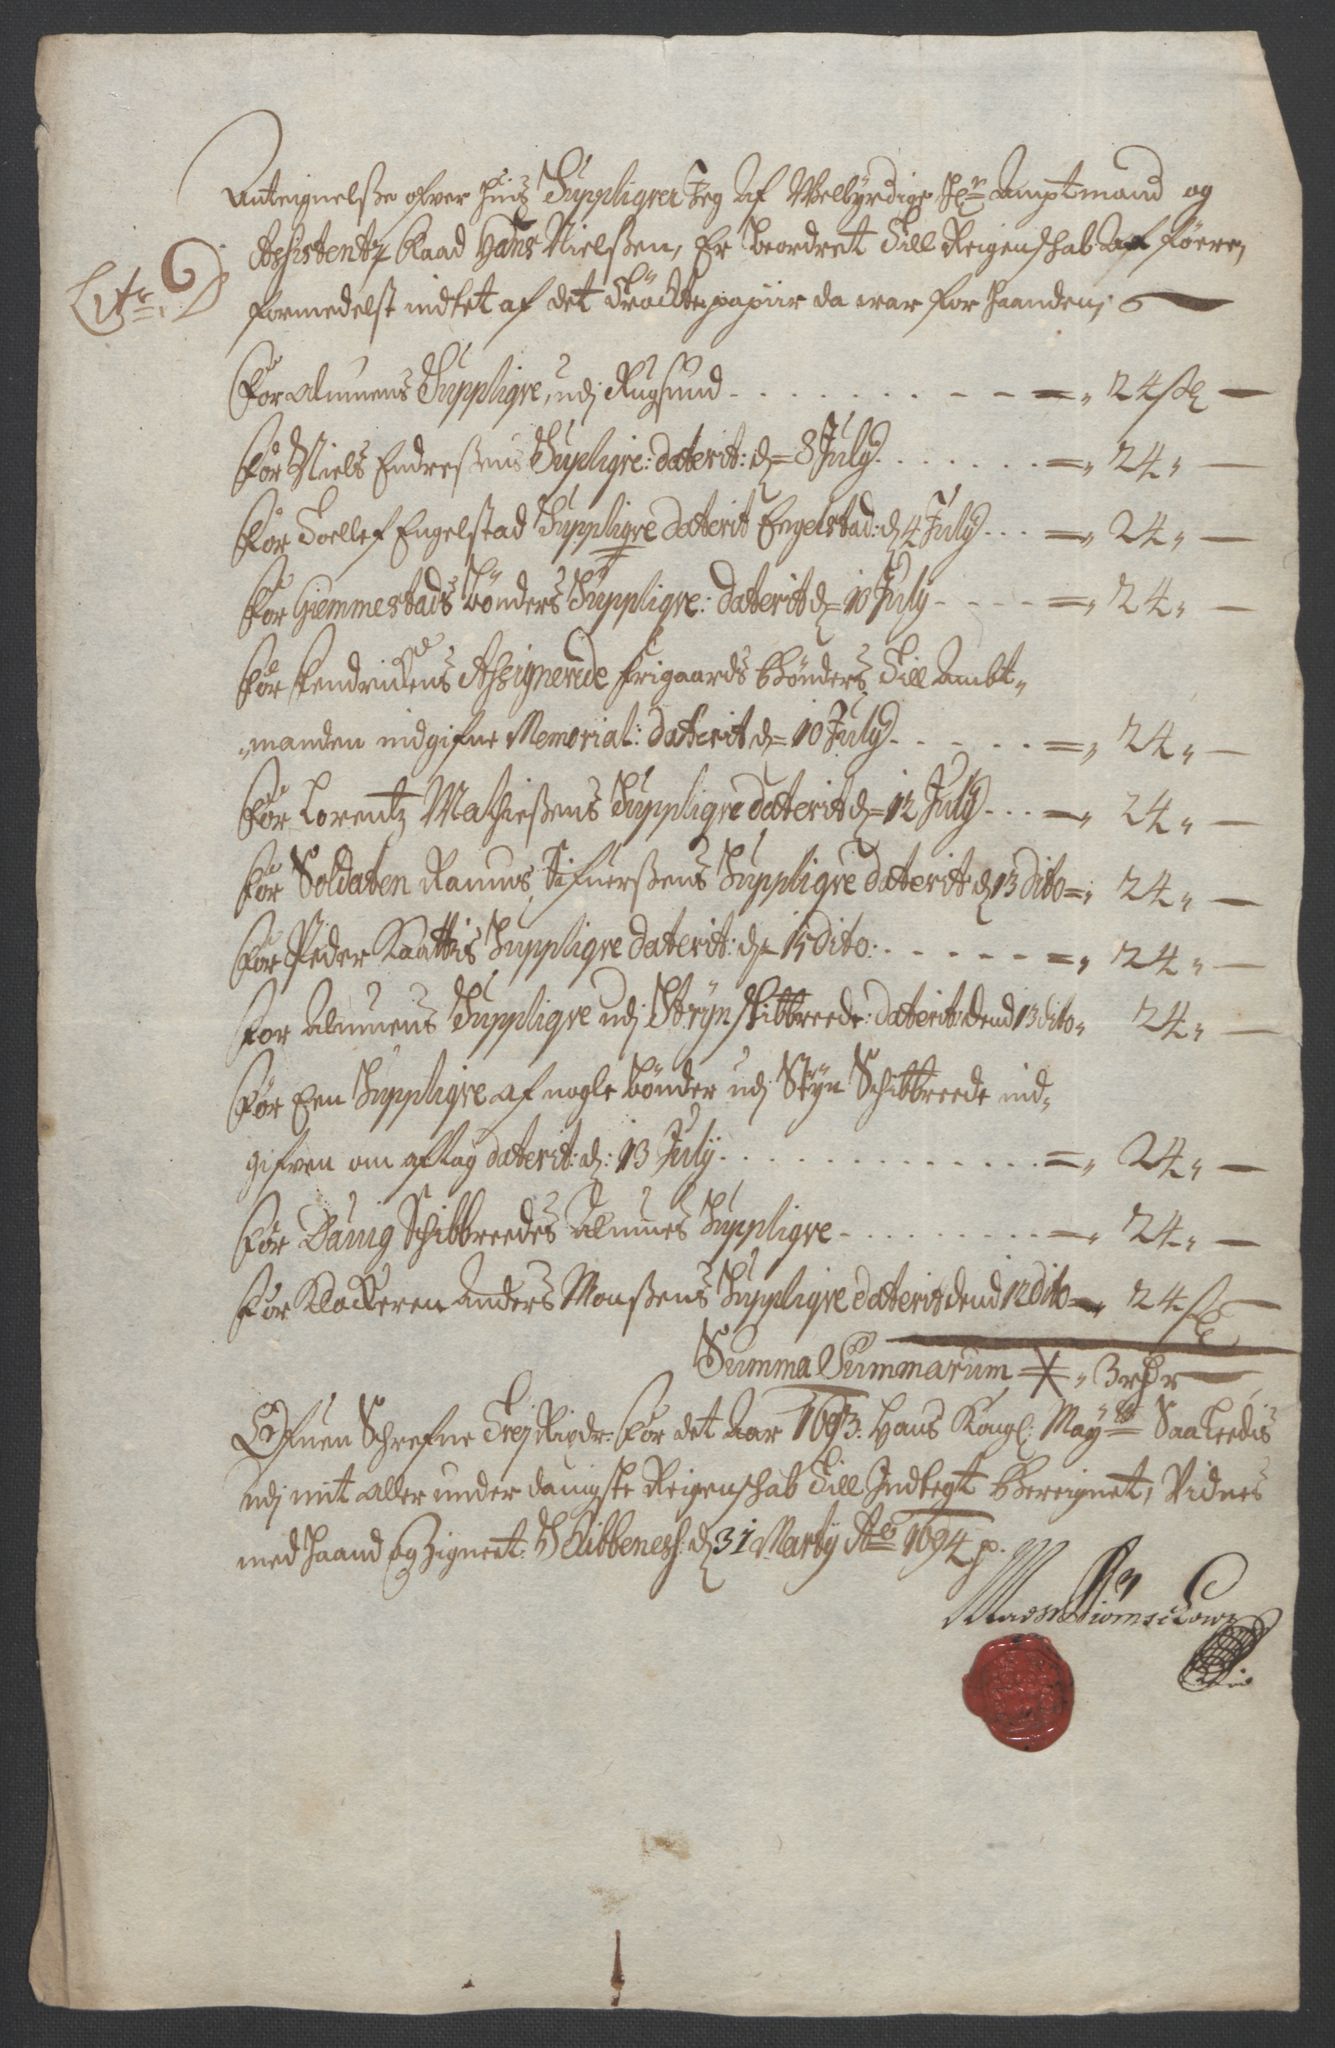 Anteignelse ofver huis Suppliqver Jeg af Welbyrdige Hr. Amptmand og
Assistentz Raad Hans Nielsen, Er beordret Till Reigenschab at føere,
Litr. C
formedelst indtet af det Tröchte papiir da war for haanden;
For Almuens Suppliqve, udj Rugsund - - - 24 sk
For Niels Endresens Supliqve: daterit: d= 8 July - - - 24 „
For Toellef Engelstad Suppliqve daterit Engelstad: d 4 July - - - 24 „
For Giemmestads bønders Suppliqve: daterit d= 10 July - - - 24 „
For fendrichens Assignerede frigaards bønders Till Ambt-
manden indgifne Memorial: daterit d= 10 July - - - 24 „
For Lorentz Mathiesens Suppliqve daterit d= 12 July - - - 24 „
For Soldaten Rasmus Sifuersens Suppliqve daterit d 13 dito = 24 „
For Peder Kaattis Suppliqve daterit: d= 15 dito: - - - 24 „
For Almuens Suppliqve udj Stryn skibbrede: daterit: dend 13 dito 24 „
For Een Suppliqve af nogle bønder udj Stryn Schibbreede ind-
gifven om aftag daterit: d: 13 July - - - 24 „
For Daving Schibbreedes Almues Suppliqve - - - 24 „
For Klockeren Anders Monsens Suppliqve daterit dend 12 dito 24 sk
Summa Summarum „ 3 rdr
Ofuen Schrefne Trej Rixdr. for det Aar 1693. Hans Kongl: Mayts Saaledis
udj mit aller underdanigste Reigenschab Till Indtegt Bereignet, Vidnes
med haand og Zignet. d 31 Marty Ao 1694 p.